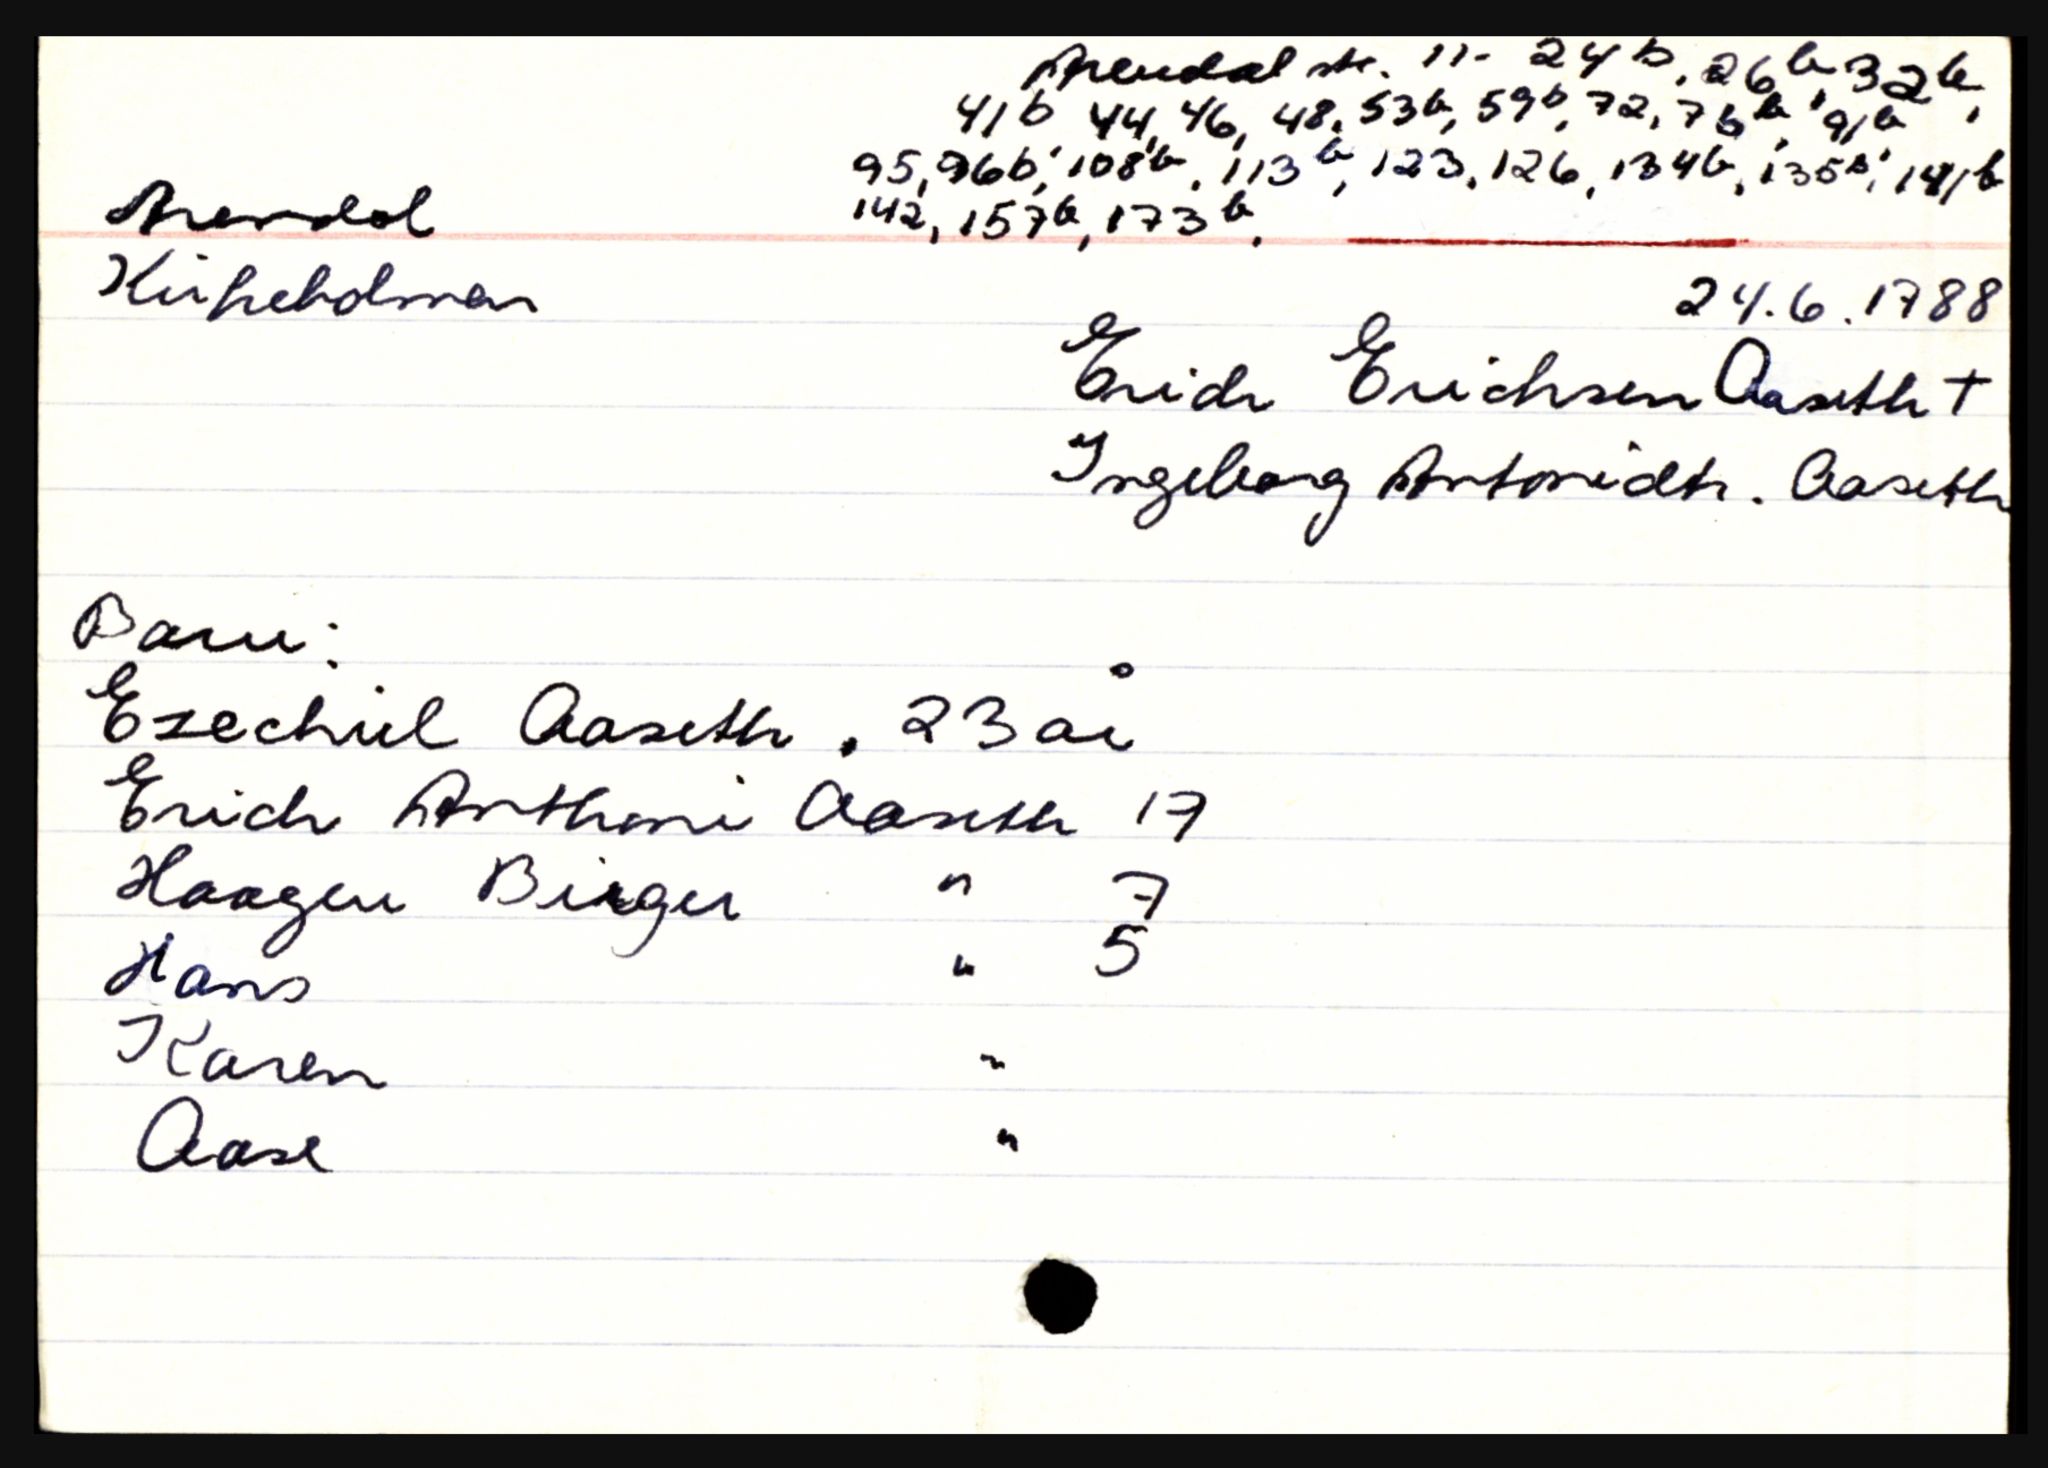 Arendal sk. 11- 24b, 26b 32b,
41b 44, 46, 48, 53b, 59b, 72, 76b, 91b
95, 96b, 108b, 113b, 123, 126, 134b, 135b, 141b
142, 157b, 173b,
Arendal
Kirkeholmen
24.6.1788
Erich Erichsen Aaseth +
Ingeborg Antonidtr. Aaseth
Barn:
Ezechiel Aaseth. 23 år
Erich Anthoni Aaseth 17
Haagen Birger " 7
Hans " 5
Karen "
Aase "